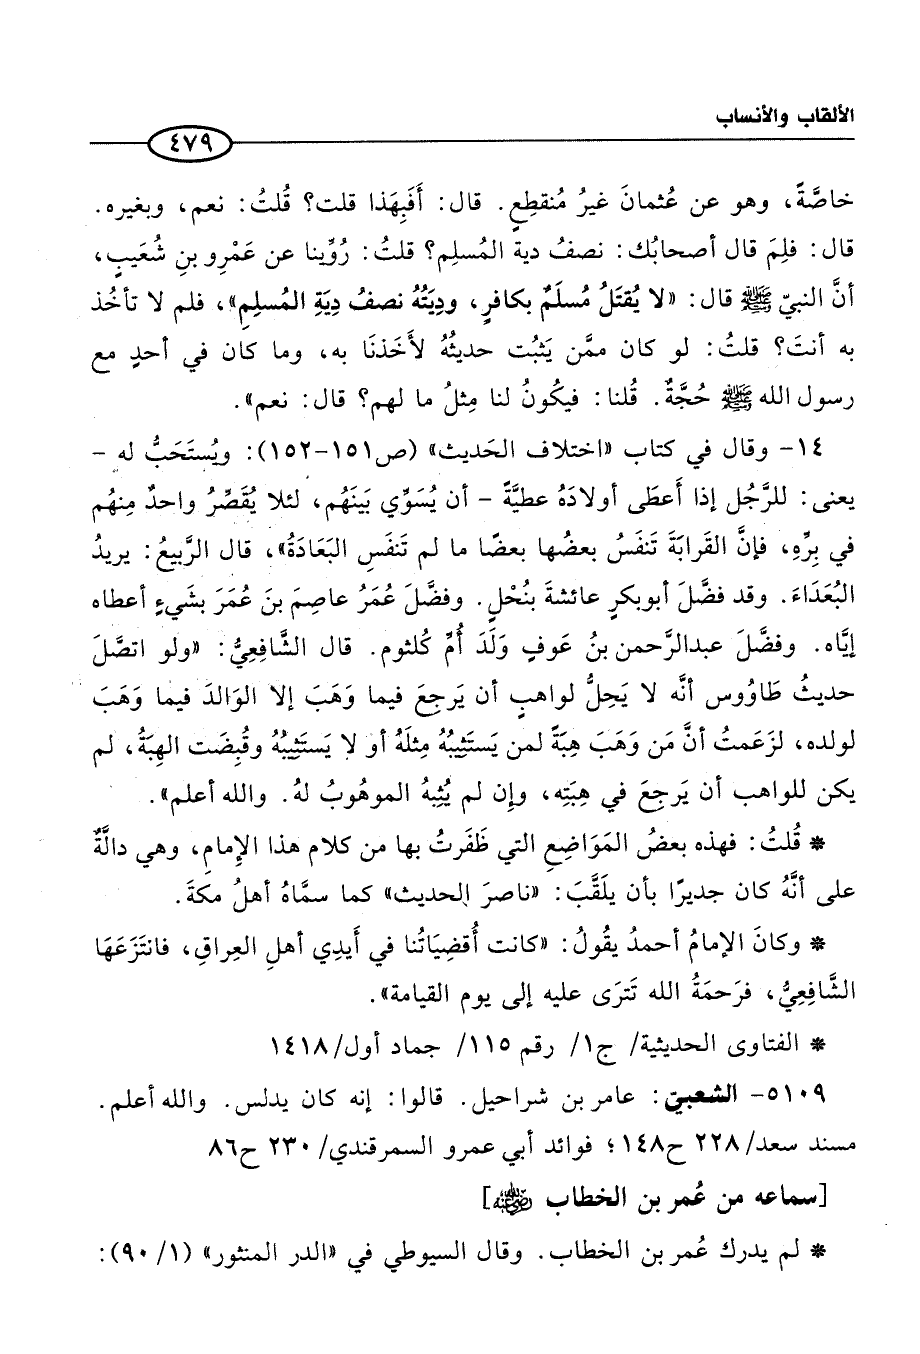 الألقاب والأنساب
٤٧٩
خاصَّةً، وهو عن عُثمانَ غيرُ مُنقطِعٍ. قال: أَفَبِهَذا قلت؟ قُلتُ: نعم، وبغيره.
قال: فلِمَ قال أصحابُك: نصفُ دية المُسلِم؟ قلتُ: رُوِّينا عن عَمْرِو بنِ شُعَيبٍ،
أنَّ النبيّ ﷺ قال: «لا يُقتَلُ مُسلمٌ بكافرٍ، ودِيَتُهُ نصفُ دِيَةِ المُسلِمِ»، فلم لا تأخُذ
به أنتَ؟ قلتُ: لو كان ممَّن يَثبُت حديثُهُ لأَخَذنَا به، وما كان في أحدٍ مع
رسول الله ﷺ حُجَّةٌ. قُلنا: فيكُونُ لنا مِثلُ ما لهم؟ قال: نعم».
١٤- وقال في كتاب «اختلاف الحَديث» (ص١٥١-١٥٢): ويُستَحَبُّ له -
يعنى: للرَّجُل إذا أَعطَى أولادَهُ عطيَّةً - أن يُسَوِّي بَينَهُم، لئلا يُقَصِّرُ واحدٌ مِنهُم
في بِرِّهِ، فإنَّ القَرابَةَ تَنفَسُ بعضُها بعضًا ما لم تَنفَسِ البَعَادَةُ»، قال الرَّبيعُ: يريدُ
البُعَدَاءَ. وقد فضَّلَ أبوبكرٍ عائشةَ بنُحْلٍ. وفضَّلَ عُمَرُ عاصِمَ بنَ عُمَرَ بشَيءٍ أعطاه
إيَّاه. وفضَّلَ عبدالرَّحمن بنُ عَوفٍ وَلَدَ أُمِّ كُلثوم. قال الشَّافعِيُّ: «ولو اتصَّلَ
حديثُ طَاوُوس أنَّه لا يَحِلُّ لواهبٍ أن يَرجِعَ فيما وَهَبَ إلا الوَالدَ فيما وَهَبَ
لولده، لزَعَمتُ أنَّ مَن وَهَبَ هِبَةً لمن يَستَثِيبُهُ مِثلَهُ أو لا يَستَثِيبُهُ وقُبِضَت الهِبَةُ، لم
يكن للواهب أن يَرجِعَ في هِبَتِه، وإن لم يُثِبهُ الموهُوبُ لهُ. والله أعلم».
* قُلتُ: فهذه بعضُ المَوَاضِعِ التي ظَفَرتُ بها من كلام هذا الإمامِ، وهي دالَّةٌ
على أنَّهُ كان جديرًا بأن يلَقَّبَ: «ناصرَ الحديث» كما سمَّاهُ أهلُ مكةَ.
* وكانَ الإمامُ أحمدُ يقُولُ: «كانت أُقضِيَاتُنا في أَيدِي أهلِ العِراقِ، فانتَزَعَهَا
الشَّافِعِيُّ، فرَحمَةُ الله تَترَى عليه إلى يوم القيامة».
* الفتاوى الحديثية/ ج١/ رقم ١١٥/ جماد أول/ ١٤١٨
٥١٠٩- الشعبيّ: عامر بن شراحيل. قالوا: إنه كان يدلس. والله أعلم.
مسند سعد/ ٢٢٨ ح١٤٨؛ فوائد أبي عمرو السمرقندي/ ٢٣٠ ح٨٦
[سماعه من عُمر بن الخطاب رضي الله عنه]
* لم يدرك عُمر بن الخطاب. وقال السيوطي في «الدر المنثور» (١/ ٩٠):